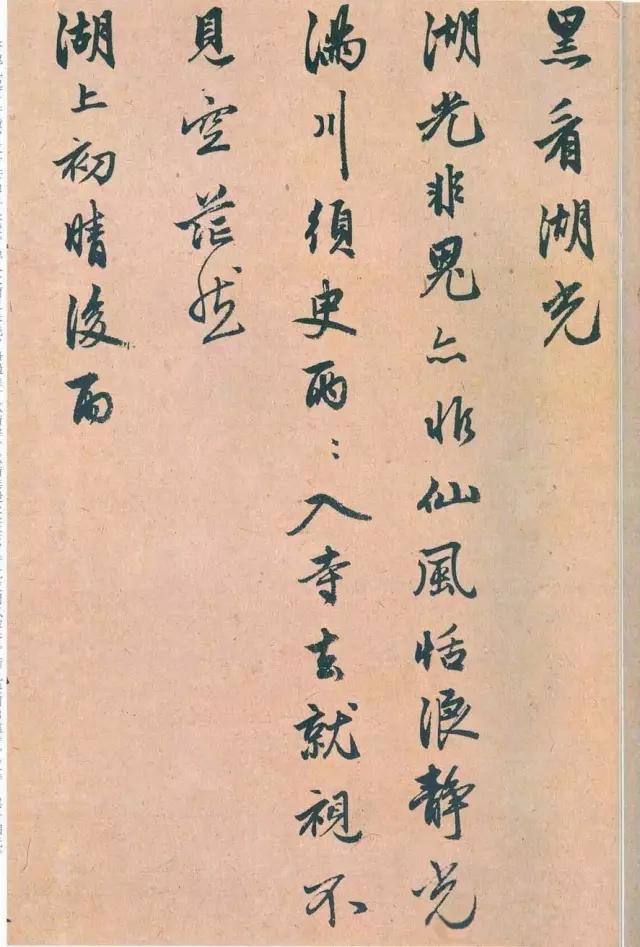 黑看湖光
湖光非鬼亦非仙風恬浪靜光
滿川須史兩〻入寺去就視不
見空茫然
湖上初晴後雨